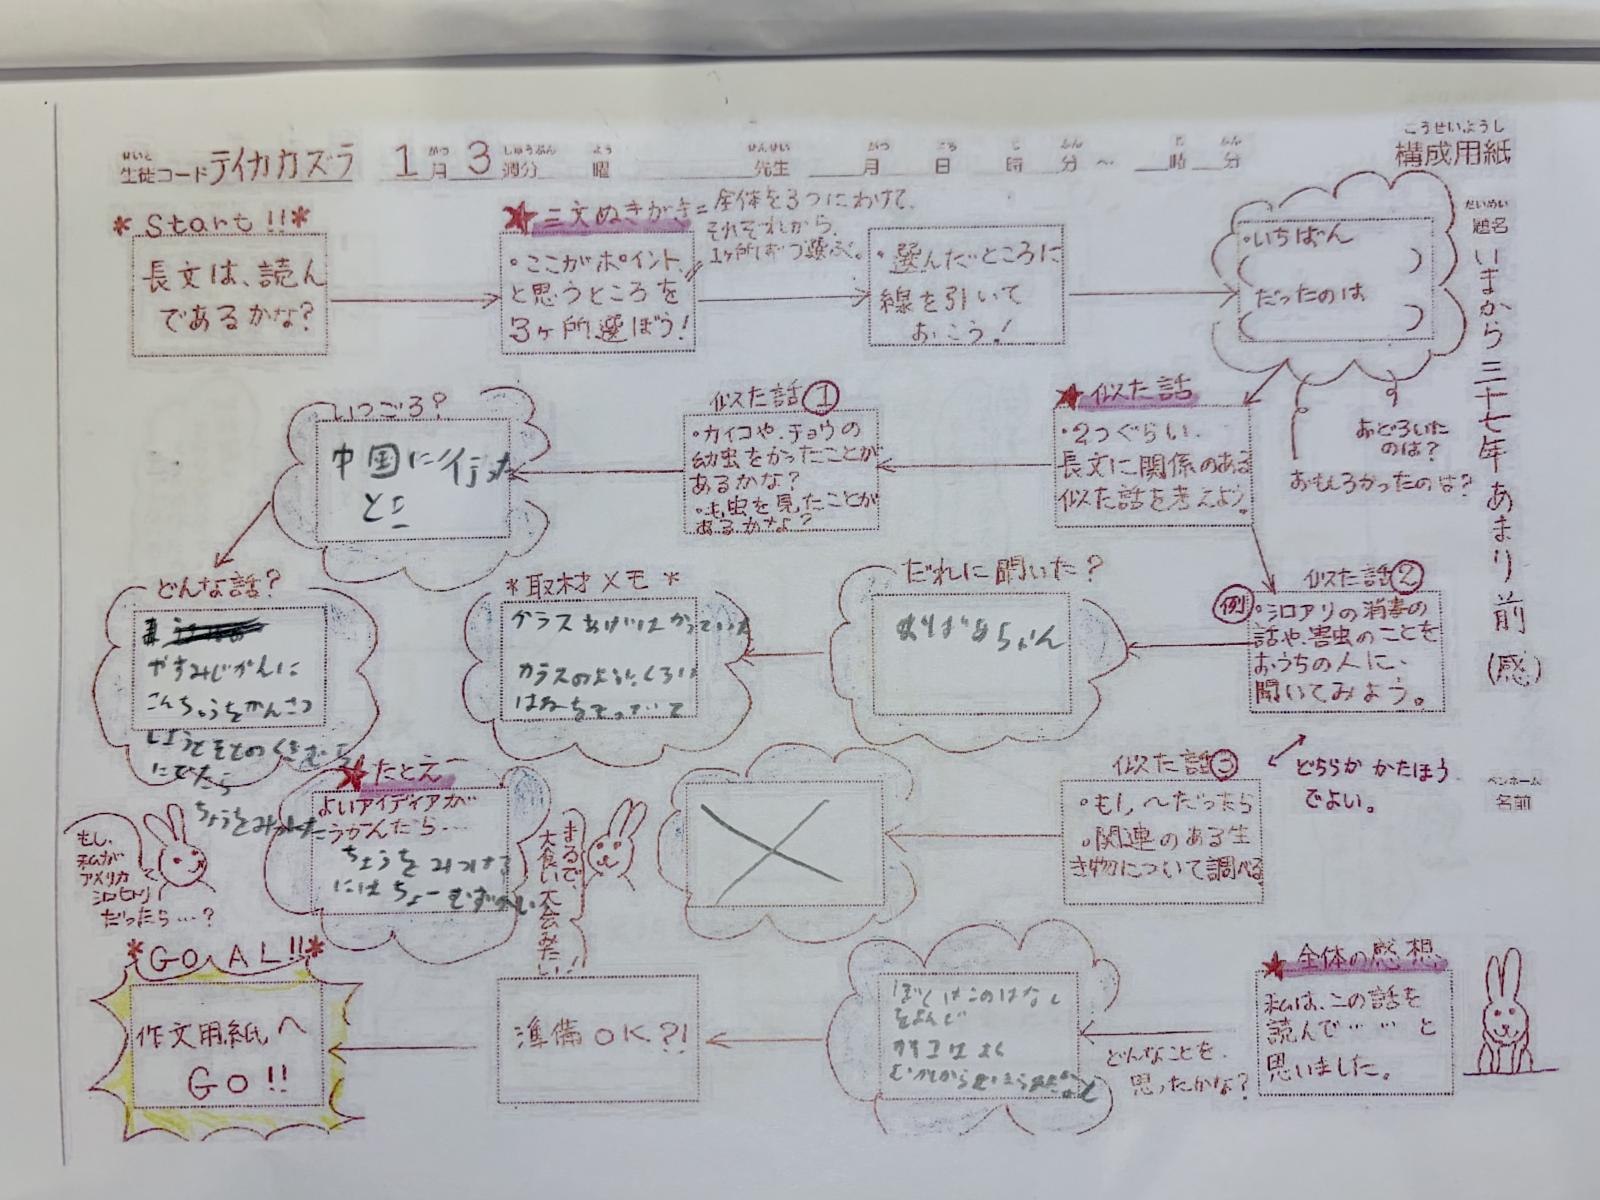 こうせいようし
構成用紙
せいと
生徒コード テイカカズラ 1月 3週分 曜 先生 月 日 時 分 ～ 時 分
だいめい
題名
いまから三十七年あまり前(感)
ペンネーム
名前
＊Start!!＊
長文は、読ん
であるかな?
★三文ぬきがき=全体を3つにわけて、
それぞれから、
1ヶ所ずつ選ぶ。
・ここがポイント、
と思うところを
3ヶ所選ぼう!
・選んだところに
線を引いて
おこう!
・いちばん
( )
だったのは
( )
おどろいた
のは?
おもしろかったのは?
★似た話
・2つぐらい、
長文に関係のある
似た話を考えよう。
似た話①
・カイコや、チョウの
幼虫をかったことが
あるかな?
・毛虫を見たことが
あるかな?
いつごろ?
中国に行った
とこ
どんな話?
やすみじかんに
こんちゅうをかんさつ
しようとそとの
にでたら
ちょうをみ
似た話②
例
・シロアリの消毒の
話や、害虫のことを
おうちの人に、
聞いてみよう。
どちらか かたほう
でよい。
だれに聞いた?
ばあちゃん
＊取材メモ＊
カラスあげはかっていた
カラスのようにくろい
はねをもっていて
似た話③
・もし、～だったら
・関連のある生
き物について調べる
★たとえ
よいアイディアが
うかんだら…
ちょうをみつける
にはちょーむずかしい
まるで、
大食い大会みたい!
もし、
私が
アメリカ
シロヒトリ
だったら…?
★全体の感想
私は、この話を
読んで……と
思いました。
どんなことを、
思ったかな?
ぼくはこのはなし
をよんで
カイコはよく
むかしから
準備OK?!
＊GOAL!!＊
作文用紙へ
GO!!